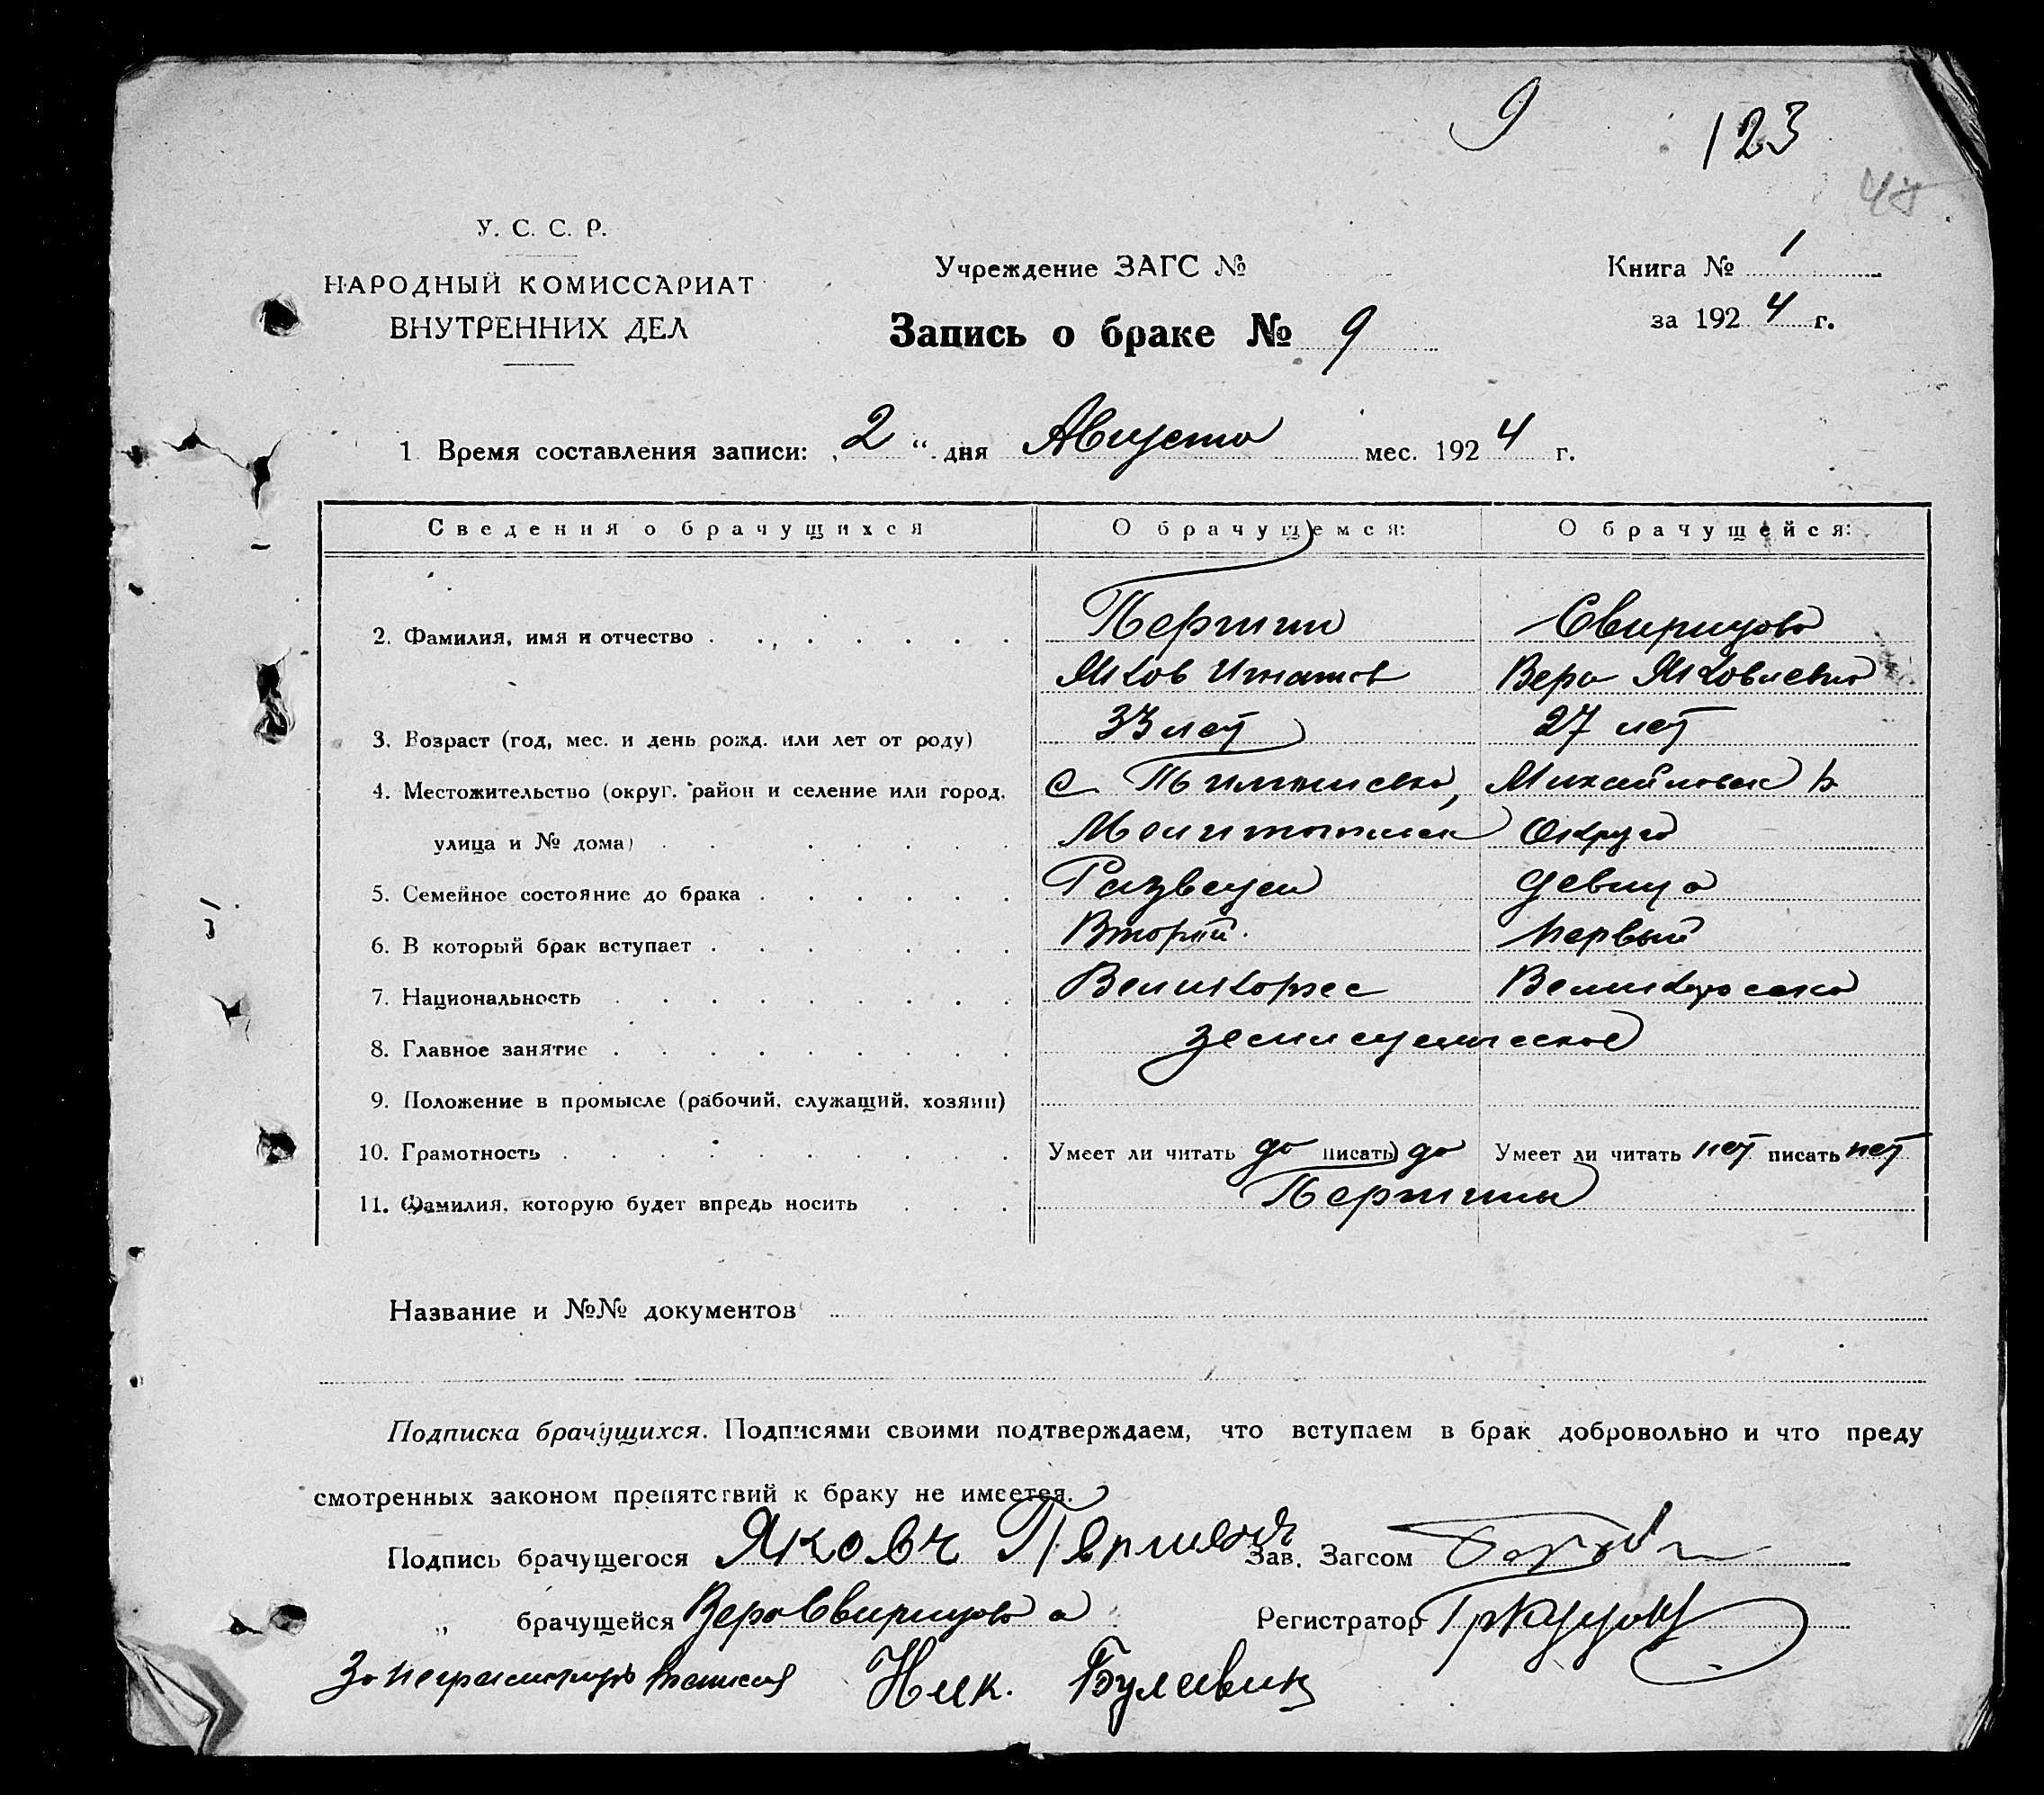 9
123
У. С. С. Р.
НАРОДНЫЙ КОМИССАРИАТ
ВНУТРЕННИХ ДЕЛ
Учреждение ЗАГС №
Книга № 1
за 1924 г.
Запись о браке № 9
1 Время составления записи: „2“ дня Августа мес. 1924 г.
Сведения о брачущихся О брачущемся: О брачущейся:
2. Фамилия, имя и отчество Першин Свирицова
Яков Игнатов Вера Яковлевна
3. Возраст (год, мес. и день рожд. или лет от роду) 33 лет 27 лет
4. Местожительство (округ. район и селение или город, с. Михайловск р.
улица и № дома) Мелитопольск Округа
5. Семейное состояние до брака Разведен девица
6. В который брак вступает Второй. первый
7. Национальность Великорос Великоросска
8. Главное занятие земледельческое
9. Положение в промысле (рабочий, служащий, хозяин)
10. Грамотность Умеет ли читать да писать да Умеет ли читать нет писать нет
11. Фамилия, которую будет впредь носить Першины
Название и №№ документов
Подписка брачущихся. Подписями своими подтверждаем, что вступаем в брак добровольно и что преду
смотренных законом препятствий к браку не имеется.
Подпись брачущегося Яковъ Зав. Загсом
„ брачущейся Вера Свирицова а Регистратор
За неграмотную Ник.